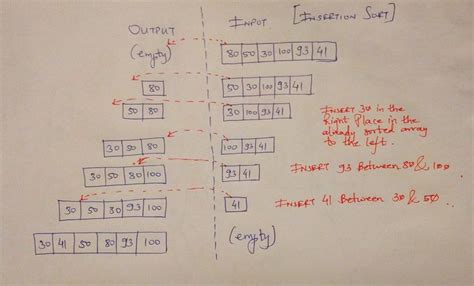 OUTPUT INPUT [INSERTION SORT]
(empty) 80 50 30 100 93 41
80 50 30 100 93 41
50 80 30 100 93 41
INSERT 30 in the
Right Place in the
already sorted array
to the left.
30 50 80 100 93 41
30 50 80 100 93 41 INSERT 93 Between 80 & 100
30 50 80 93 100 41 INSERT 41 Between 30 & 50.
30 41 50 80 93 100 (empty)